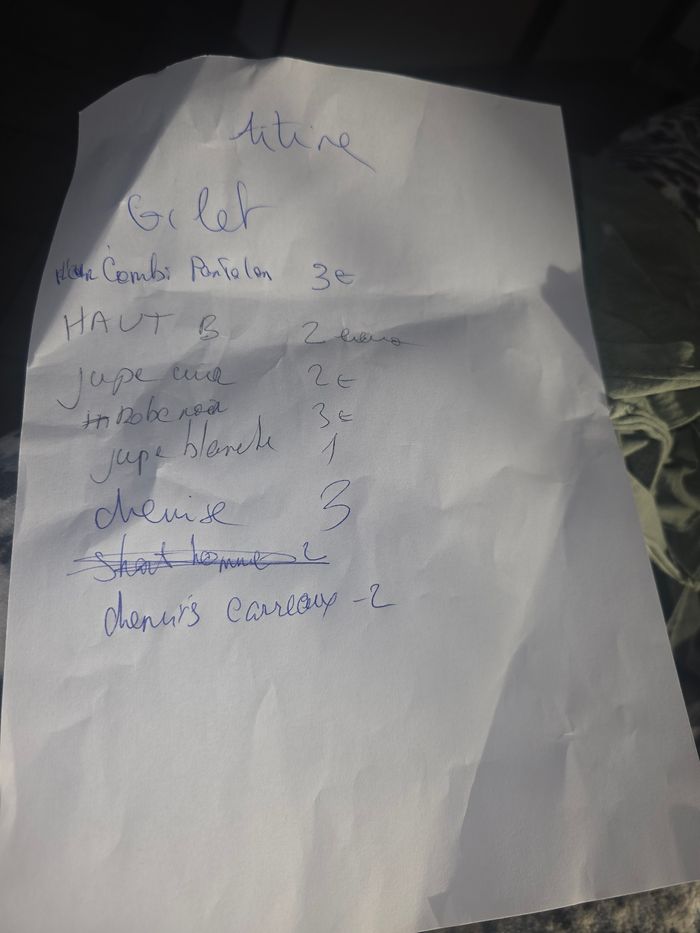 titine
Gilet
Combi Pantalon 3€
HAUT B 2 euro
jupe 2€
Robe noir 3€
jupe blanche 1
chemise 3
short homme 2
chemis carreaux - 2